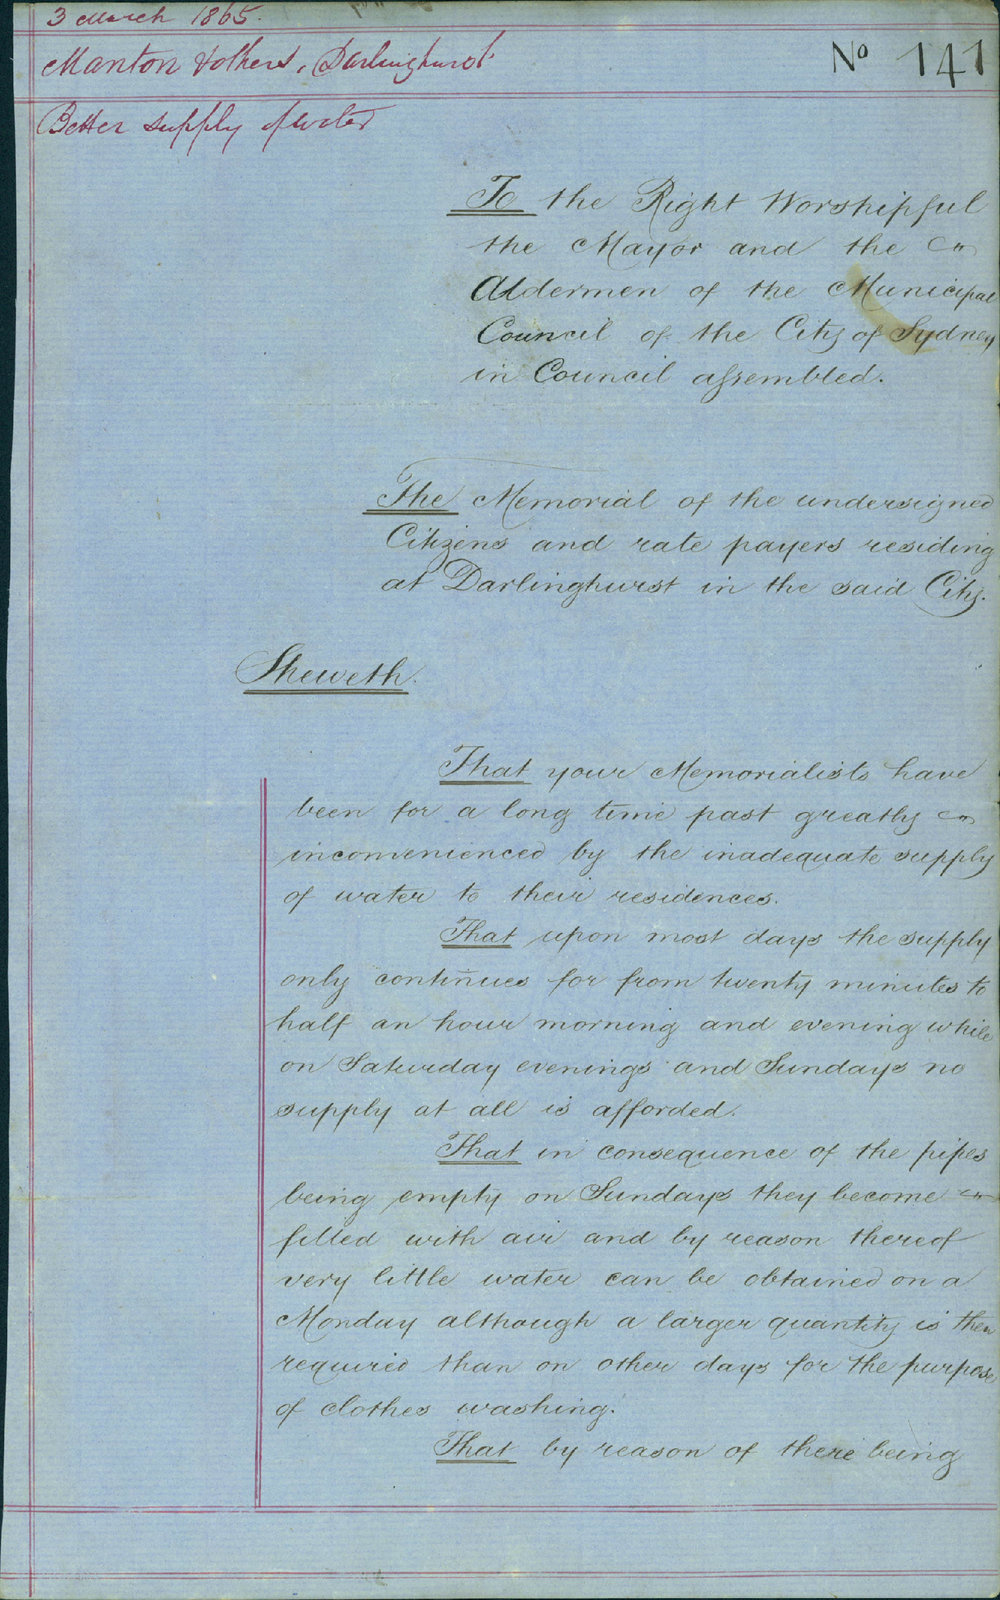 3 March 1865.
Manton & others, Darlinghurst
No 141
Better supply of water
To the Right Worshipful
the Mayor and the
Aldermen of the Municipal
Council of the City of Sydney
in Council assembled.
The Memorial of the undersigned
Citizens and rate payers residing
at Darlinghurst in the said City.
Sheweth.
That your Memorialists have
been for a long time past greatly
inconvenienced by the inadequate supply
of water to their residences.
That upon most days the supply
only continues for from twenty minutes to
half an hour morning and evening while
on Saturday evenings and Sundays no
supply at all is afforded.
That in consequence of the pipes
being empty on Sundays they become
filled with air and by reason thereof
very little water can be obtained on a
Monday although a larger quantity is then
required than on other days for the purpose
of clothes washing.
That by reason of there being